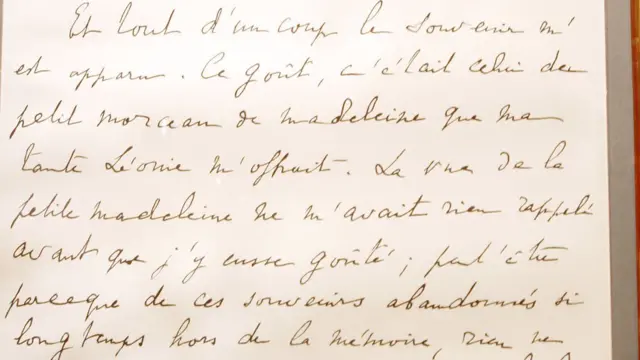 Et tout d'un coup le souvenir m'
est apparu. Ce goût, c'était celui du
petit morceau de madeleine que ma
tante Léonie m'offrait. La vue de la
petite madeleine ne m'avait rien rappelé
avant que j'y eusse goûté ; peut'être
parceque de ces souvenirs abandonnés si
longtemps hors de la mémoire, rien ne